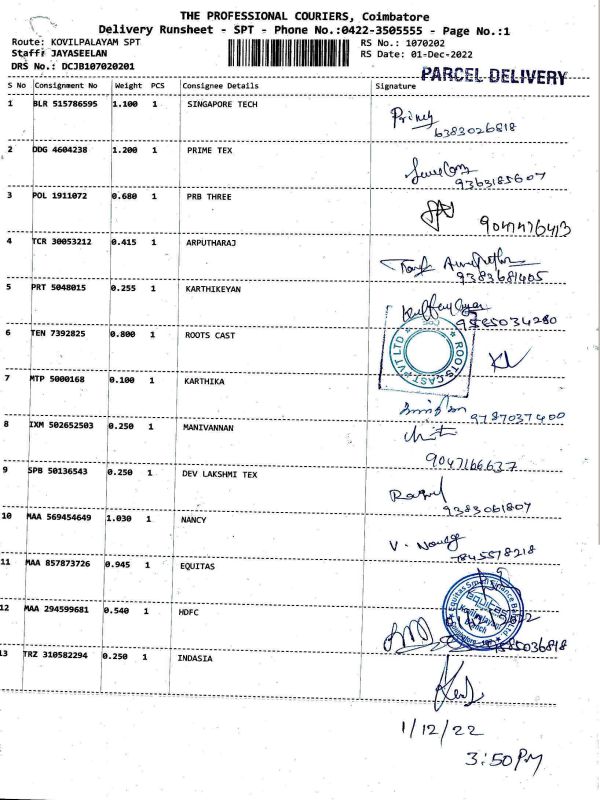 THE PROFESSIONAL COURIERS, Coimbatore
Delivery Runsheet - SPT - Phone No.:0422-3505555 - Page No.:1
Route: KOVILPALAYAM SPT RS No.: 1070202
Staff: JAYASEELAN RS Date: 01-Dec-2022
DRS No.: DCJB107020201
PARCEL DELIVERY
S No Consignment No Weight PCS Consignee Details Signature
1 BLR 515786595 1.100 1 SINGAPORE TECH
6383026818
2 DDG 4604238 1.200 1 PRIME TEX
9363185607
3 POL 1911072 0.680 1 PRB THREE
9047476413
4 TCR 30053212 0.415 1 ARPUTHARAJ
9383681405
5 PRT 5048015 0.255 1 KARTHIKEYAN
9585034280
6 TEN 7392825 0.800 1 ROOTS CAST
ROOTS CAST PVT LTD
7 MTP 5000168 0.100 1 KARTHIKA
9787037400
8 IXM 502652503 0.250 1 MANIVANNAN
9047166637
9 SPB 50136543 0.250 1 DEV LAKSHMI TEX
9383061807
10 MAA 569454649 1.030 1 NANCY
V.
7845578218
11 MAA 857873726 0.945 1 EQUITAS
Equitas Small Finance Bank Ltd
EQUITAS
Kovilpalayam
Branch
12 MAA 294599681 0.540 1 HDFC
9585036818
13 TRZ 310582294 0.250 1 INDASIA
1/12/22
3:50PM